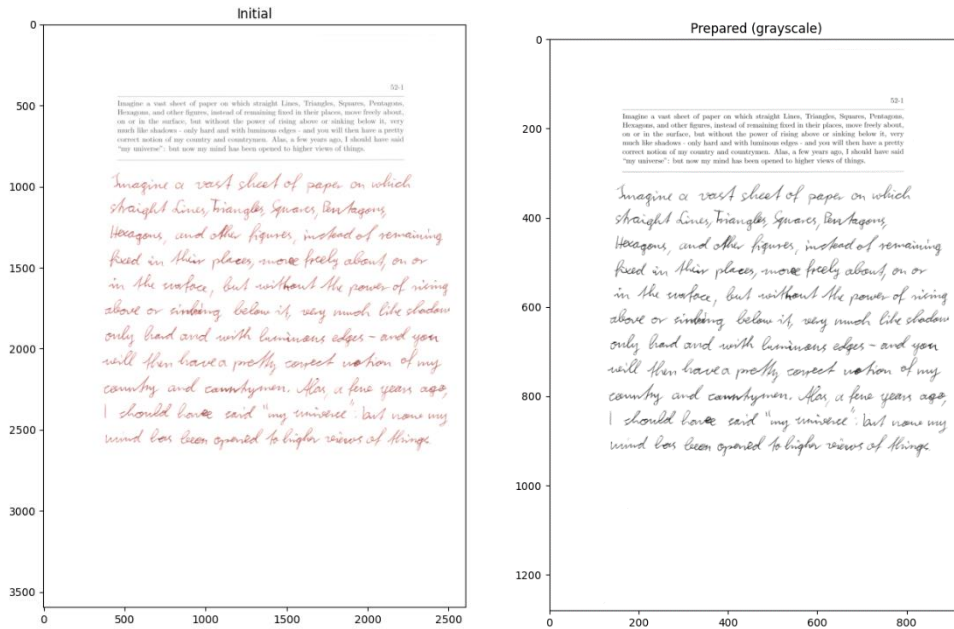 Initial
Prepared (grayscale)
0
500
1000
1500
2000
2500
3000
3500
0
500
1000
1500
2000
2500
52-1
Imagine a vast sheet of paper on which straight Lines, Triangles, Squares, Pentagons,
Hexagons, and other figures, instead of remaining fixed in their places, move freely about,
on or in the surface, but without the power of rising above or sinking below it, very
much like shadows - only hard and with luminous edges - and you will then have a pretty
correct notion of my country and countrymen. Alas, a few years ago, I should have said
"my universe": but now my mind has been opened to higher views of things.
Imagine a vast sheet of paper on which
straight Lines, Triangles, Squares, Pentagons,
Hexagons, and other figures, instead of remaining
fixed in their places, move freely about, on or
in the surface, but without the power of rising
above or sinking below it, very much like shadow
only hard and with luminous edges - and you
will then have a pretty correct notion of my
country and countrymen. Alas, a few years ago,
I should have said "my universe": but now my
mind has been opened to higher views of things
0
200
400
600
800
1000
1200
0
200
400
600
800
52-1
Imagine a vast sheet of paper on which straight Lines, Triangles, Squares, Pentagons,
Hexagons, and other figures, instead of remaining fixed in their places, move freely about,
on or in the surface, but without the power of rising above or sinking below it, very
much like shadows - only hard and with luminous edges - and you will then have a pretty
correct notion of my country and countrymen. Alas, a few years ago, I should have said
"my universe": but now my mind has been opened to higher views of things.
Imagine a vast sheet of paper on which
straight Lines, Triangles, Squares, Pentagons,
Hexagons, and other figures, instead of remaining
fixed in their places, move freely about, on or
in the surface, but without the power of rising
above or sinking below it, very much like shadow
only hard and with luminous edges - and you
will then have a pretty correct notion of my
country and countrymen. Alas, a few years ago,
I should have said "my universe": but now my
mind has been opened to higher views of things